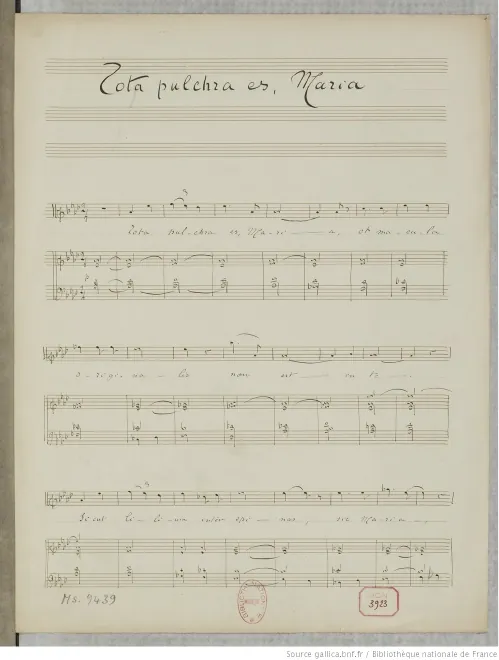 Tota pulchra es, Maria
3
Tota pul-chra es, Ma-ri — a, et ma-cu-la
o-ri-gi-na-lis non est — in te —.
3
Sicut li-li-um inter spi-nas, sic Maria —,
Ms. 9439
3923
Source gallica.bnf.fr / Bibliothèque nationale de France